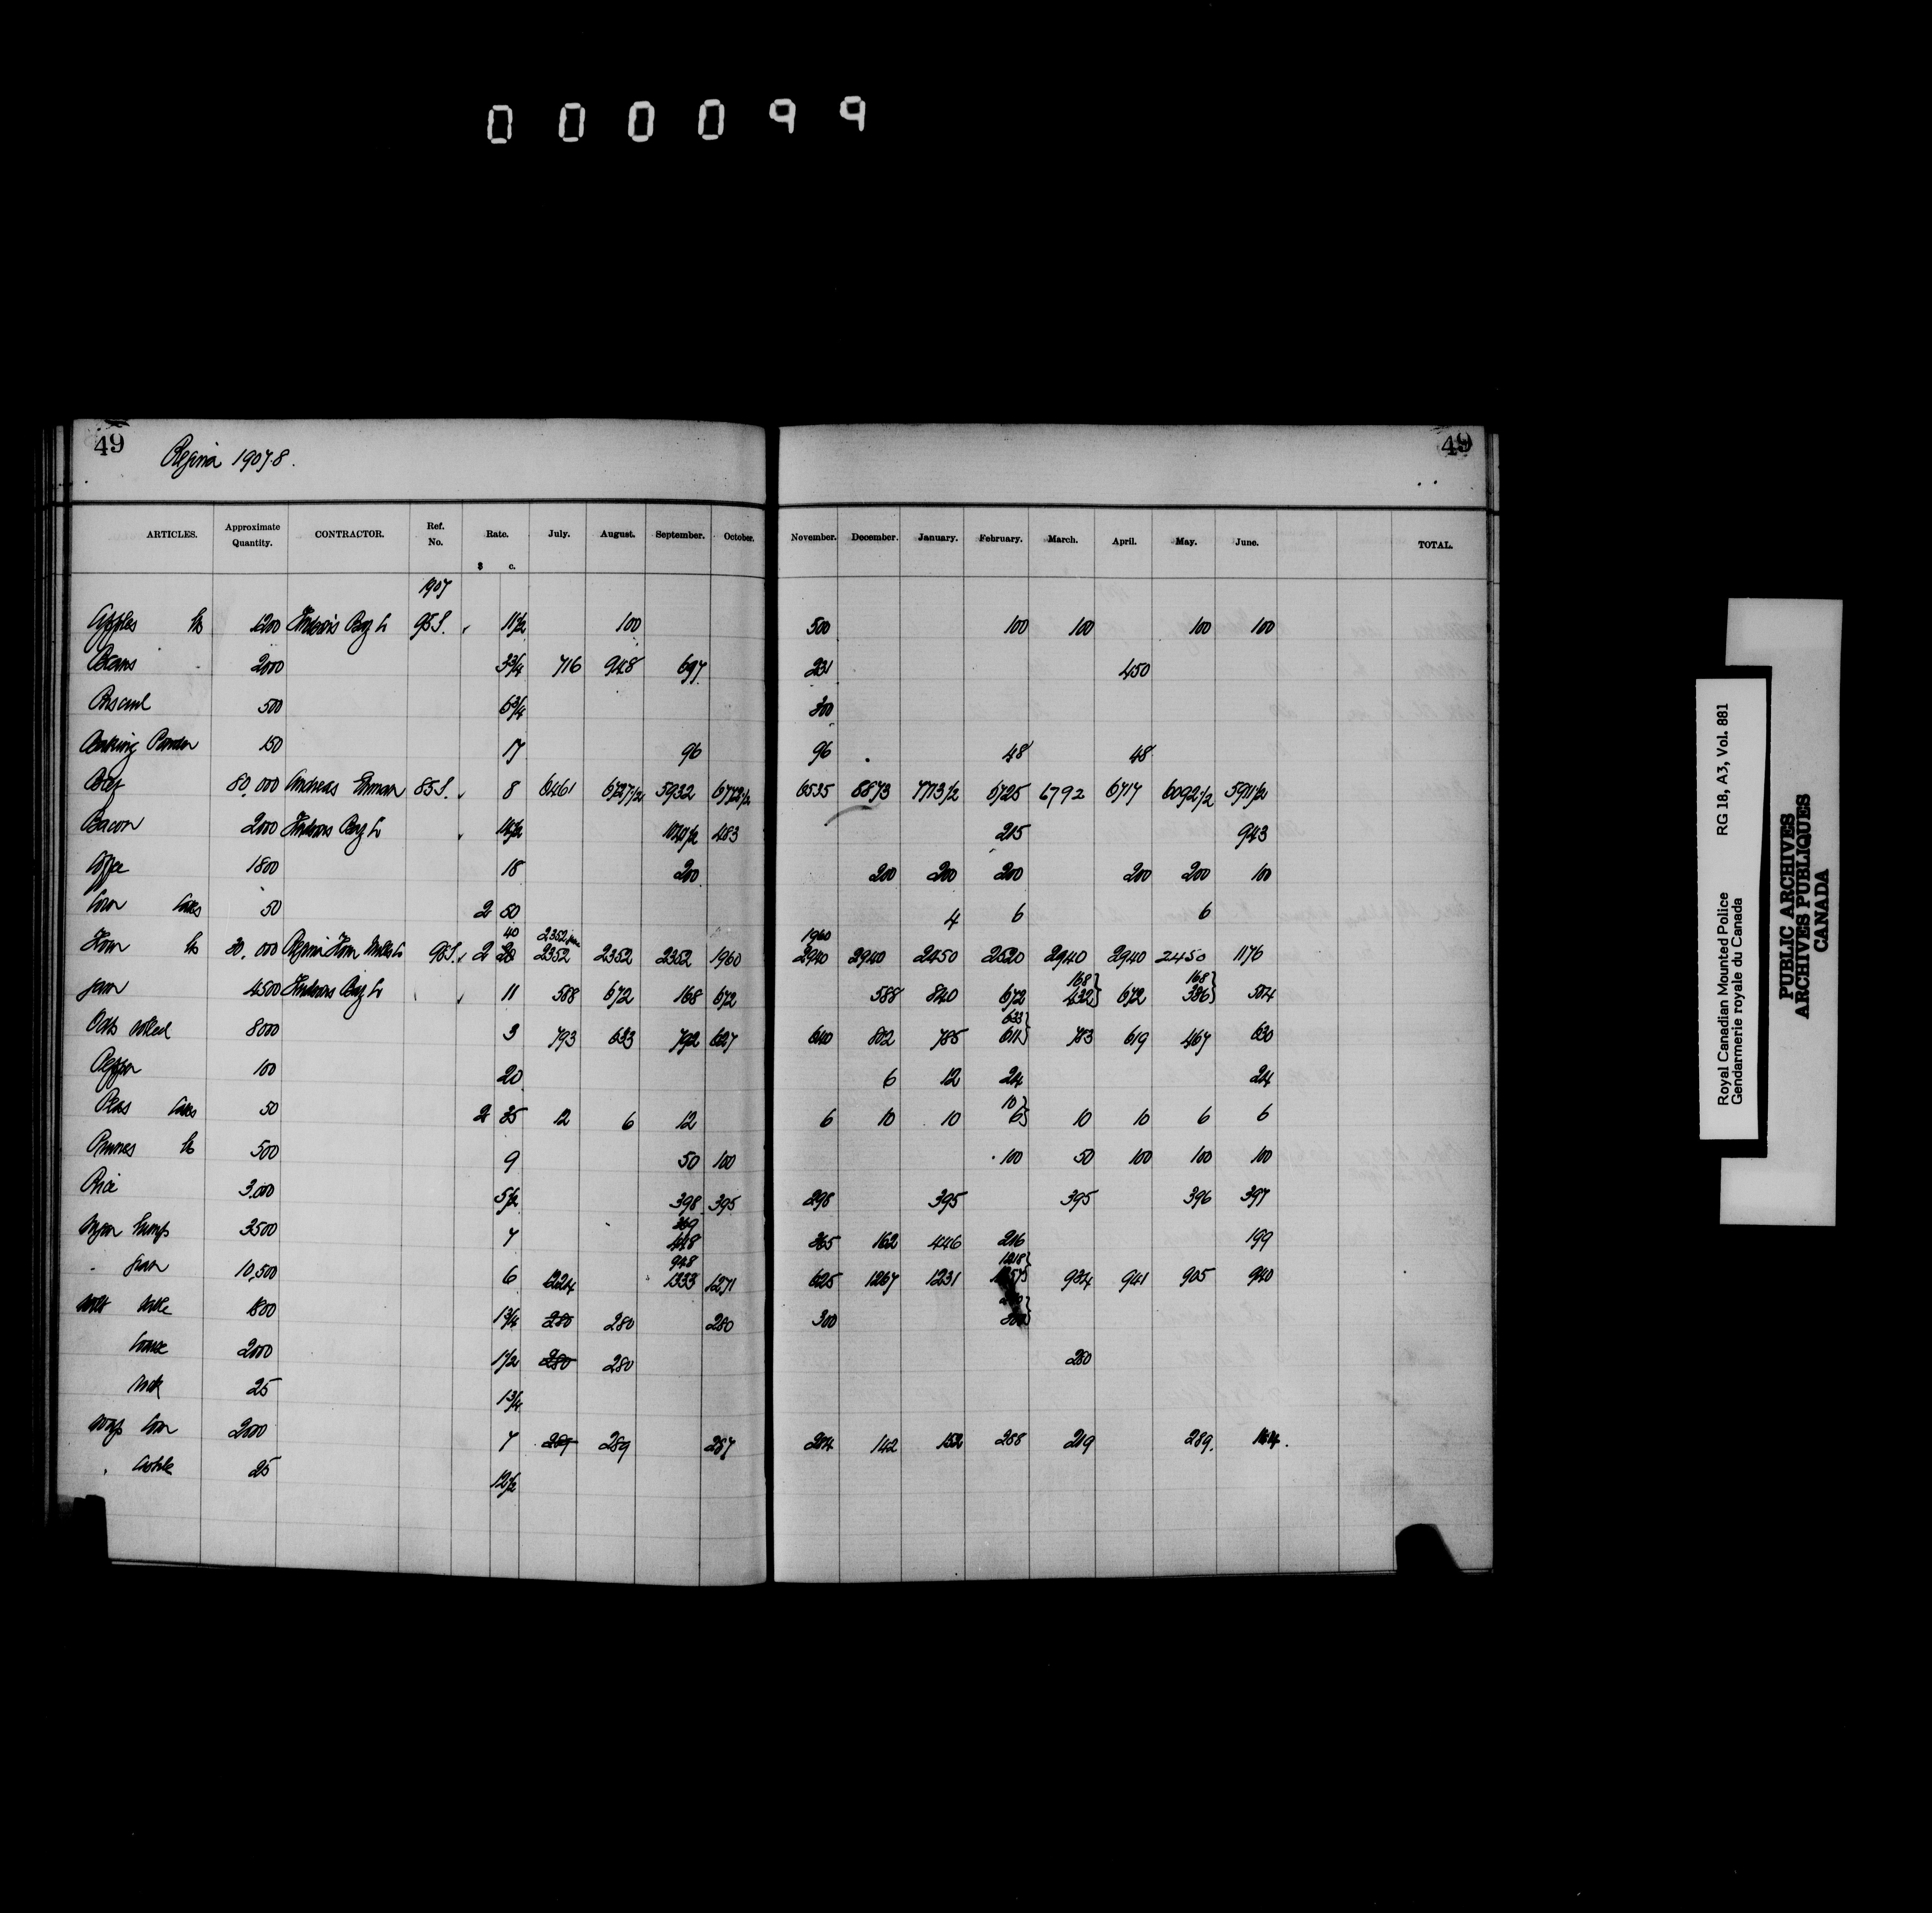 000099
49 49
Regina 1907-8.
ARTICLES. Approximate Quantity. CONTRACTOR. Ref. No. Rate. $ c. July. August. September. October. November. December. January. February. March. April. May. June. TOTAL.
1907
Apples lbs 1200 Hudsons Bay Co 95S. 11½ 100 500 100 100 100 100
Beans 2000 3¾ 716 948 697 231 450
Biscuit 500 5¾ 300
Baking Powder 150 17 96 96 48 48
Beef 80,000 Andreas Ehman 85S. 8 6461 6727½ 5932 6772½ 6535 8873 7773½ 6725 6792 6717 6092½ 5911½
Bacon 2000 Hudsons Bay Co 483 215 943
Coffee 1800 18 200 200 200 200 200 200 100
Corn Cases 50 2 50 4 6 6
40 2352 June 1960
Flour lbs 30,000 Regina Flour Mills Co 95S. 2 20 2352 2352 2352 1960 2940 2940 2450 2520 2940 2940 2450 1176
168 168
Jam 4500 Hudsons Bay Co 11 588 672 168 672 588 840 672 432 672 336 504
633
Oats rolled 8000 3 793 633 792 627 640 802 785 611 783 619 467 630
Pepper 100 20 6 12 24 24
10
Peas Cases 50 2 35 12 6 12 6 10 10 6 10 10 6 6
Prunes lbs 500 9 50 100 100 50 100 100 100
Rice 3,000 5½ 398 395 298 395 395 396 397
Sugar Lump 3500 7 448 365 162 446 216 199
948 1218
" Gran 10,500 6 1224 1333 1271 625 1267 1231 934 941 905 940
Salt table 800 1¾ 280 280 280 300 300
Coarse 2000 1½ 280 280 280
rock 25 1¾
Soap Com 2000 7 289 289 287 204 142 152 288 219 289. 144.
" Castile 25 12½
Royal Canadian Mounted Police RG 18, A3, Vol. 881
Gendarmerie royale du Canada
PUBLIC ARCHIVES
ARCHIVES PUBLIQUES
CANADA